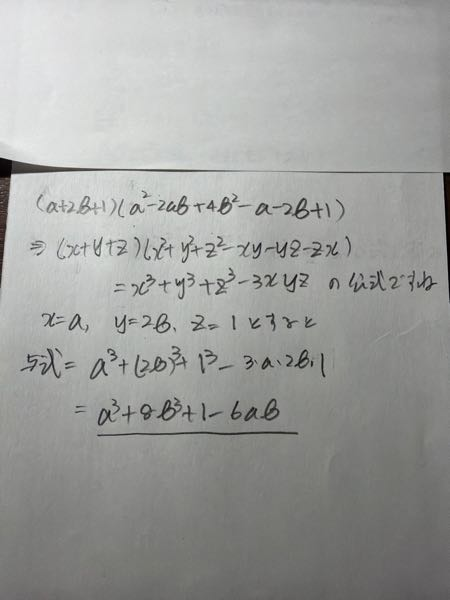 (a+2b+1)(a²-2ab+4b²-a-2b+1)
⇒ (x+y+z)(x²+y²+z²-xy-yz-zx)
=x³+y³+z³-3xyz の公式ですね
x=a, y=2b, z=1とすると
与式= a³+(2b)³+1³-3・a・2b・1
= a³+8b³+1-6ab